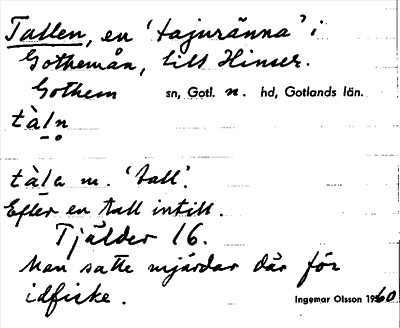 Tallen, en 'tajnränna' i
Gothemån, till Hinser.
Gothem sn, Gotl. n. hd, Gotlands län.
tàln
tàla m. 'tall'.
Efter en tall intill.
Tjälder 16.
Man satte mjärdar där för
idfiske.
Ingemar Olsson 1960